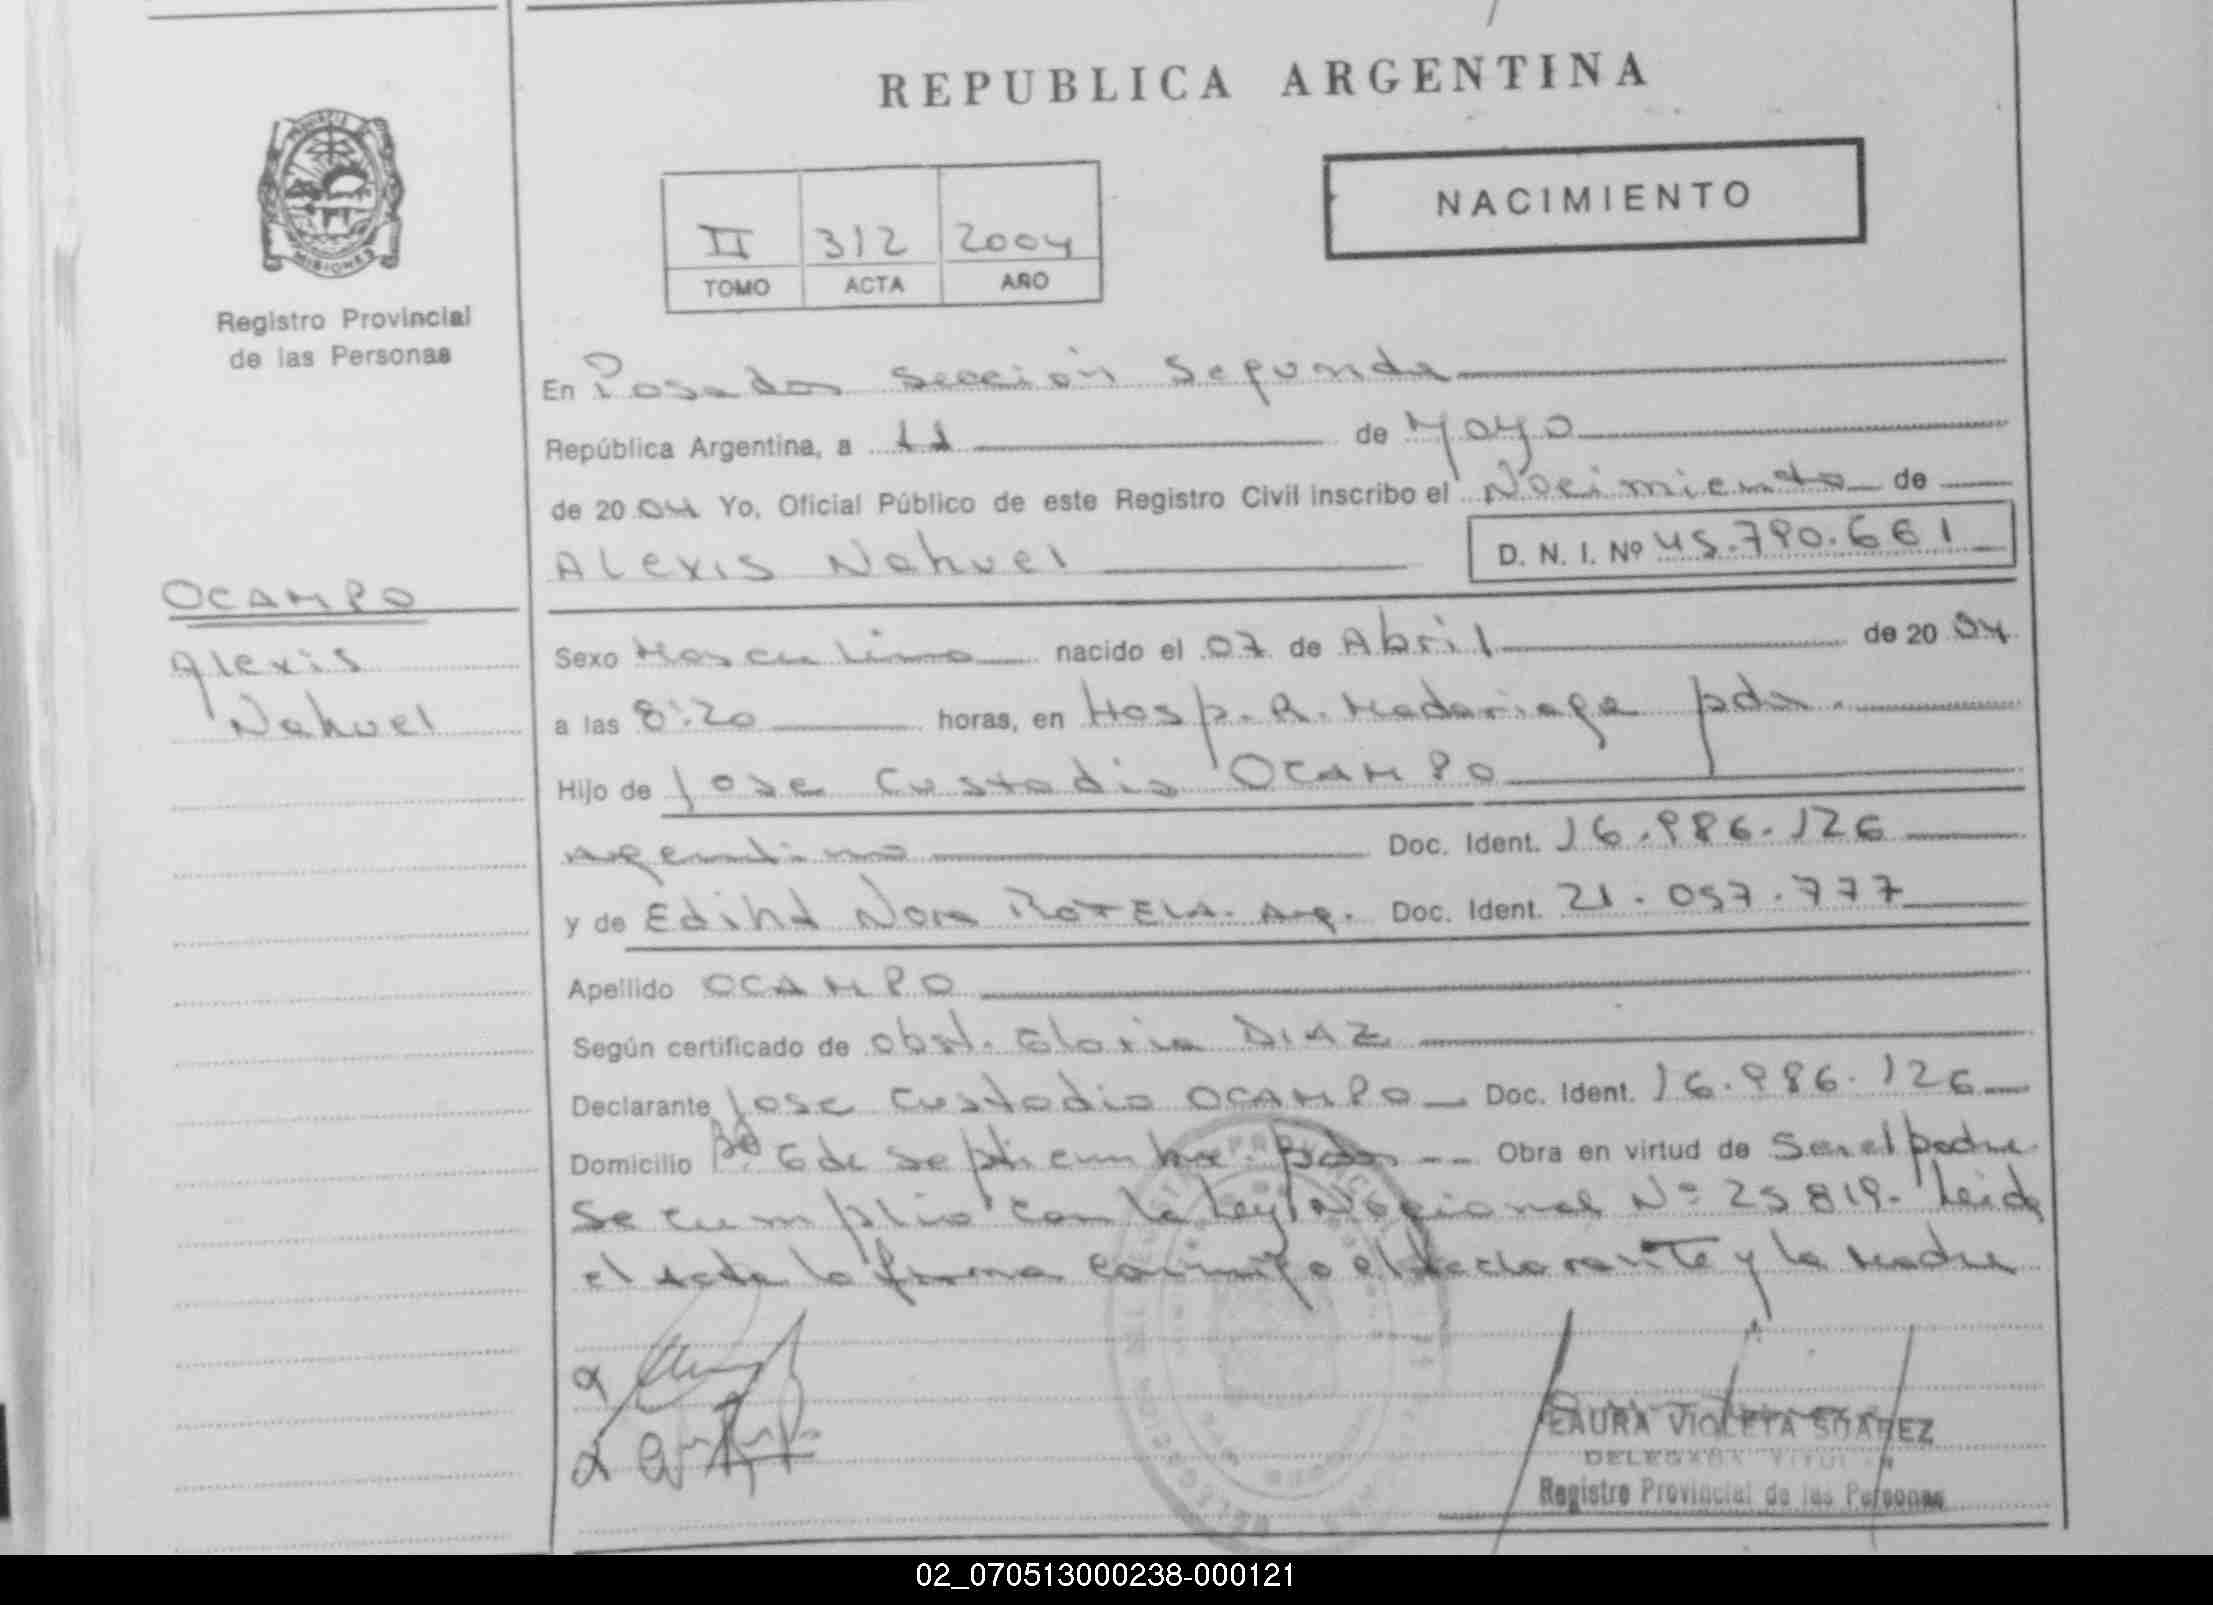 REPUBLICA ARGENTINA
PROVINCIA DE MISIONES
Registro Provincial
de las Personas
NACIMIENTO
II 312 2004
TOMO ACTA AÑO
En Posadas Sección Segunda
República Argentina, a 11 de Mayo
de 2004 Yo, Oficial Público de este Registro Civil inscribo el Nacimiento de
Alexis Nahuel D. N. I. Nº 45.790.661
OCAMPO
Alexis
Nahuel
Sexo Masculino nacido el 07 de Abril de 2004
a las 8:20 horas, en Hosp. R. Madariaga pdas.
Hijo de Jose Custodio OCAMPO
Argentino Doc. Ident. 16.986.126
y de Ediht Nora ROTELA. Arg. Doc. Ident. 21.057.777
Apellido OCAMPO
Según certificado de Obst. Gloria DIAZ
Declarante Jose Custodio OCAMPO Doc. Ident. 16.986.126
Domicilio Bº 6 de Septiembre. Pdas Obra en virtud de Ser el padre.
Se cumplio con la Ley Nacional Nº 25819. Leida
el acta la firma conmigo el declarante y la Madre
LAURA VIOLETA SUAREZ
DELEGADA TITULAR
Registro Provincial de las Personas
02_070513000238-000121